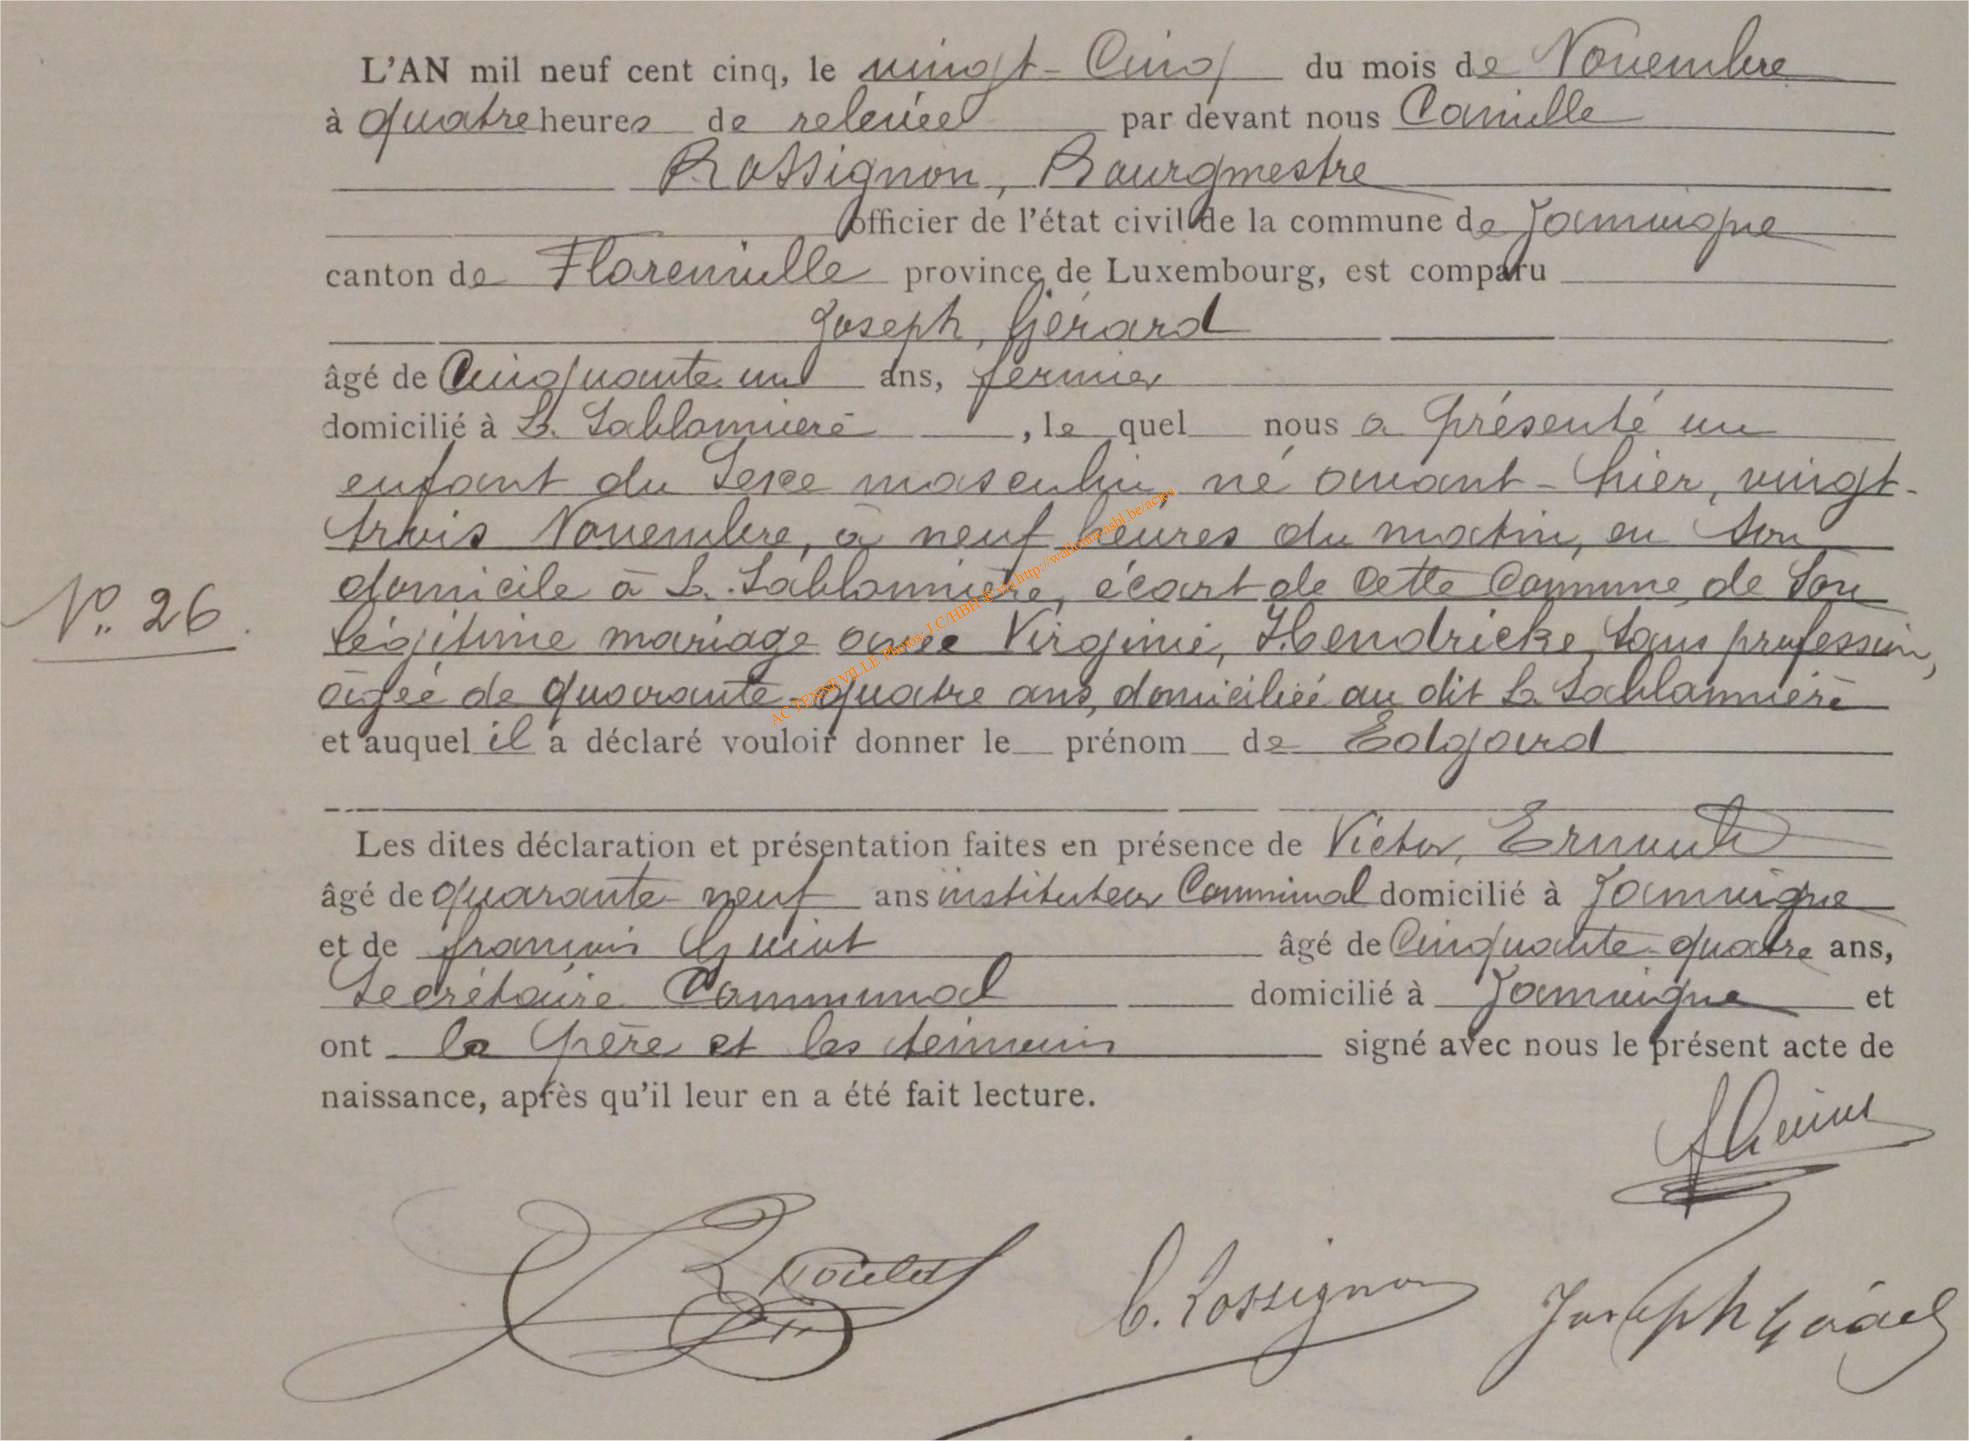 L'AN mil neuf cent cinq, le vingt-Cinq du mois de Novembre
à quatre heures de relevée par devant nous Camille
Rossignon, Bourgmestre
officier de l'état civil de la commune de Jamoigne
canton de Florenville province de Luxembourg, est comparu
Joseph, Gérard
âgé de Cinquante un ans, fermier
domicilié à La Sablonnière, le quel nous a présenté un
enfant du sexe masculin, né avant-hier, vingt-
trois Novembre, à neuf heures du matin, en son
domicile à La Sablonnière, écart de cette Commune, de son
N° 26.
légitime mariage avec Virginie, Hendricke, sans profession,
âgée de quarante-quatre ans, domiciliée au dit La Sablonnière
et auquel il a déclaré vouloir donner le prénom de Edgard
Les dites déclaration et présentation faites en présence de Victor,
âgé de quarante-neuf ans instituteur Communal domicilié à Jamoigne
et de françois Guiot âgé de Cinquante-quatre ans,
Secrétaire Communal domicilié à Jamoigne et
ont le père et les témoins signé avec nous le présent acte de
naissance, après qu'il leur en a été fait lecture.
C. Rossignon
Joseph Gérard